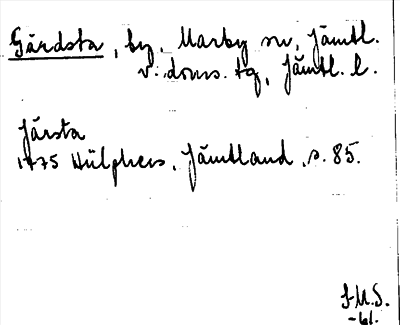 Gärdsta, by, Marby sn, Jämtl.
v. doms. tg, Jämtl. l.
Järsta
1775 Hülphers, Jämtland, s. 85.
S.M.S.
-61.